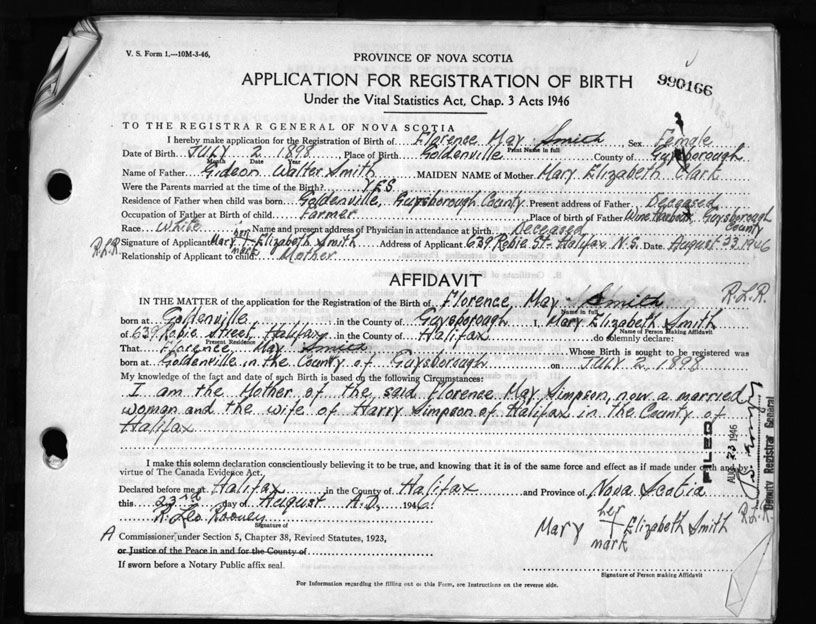 V. S. Form 1.—10M-3-46.
PROVINCE OF NOVA SCOTIA
APPLICATION FOR REGISTRATION OF BIRTH
990166
Under the Vital Statistics Act, Chap. 3 Acts 1946
TO THE REGISTRAR GENERAL OF NOVA SCOTIA
I hereby make application for the Registration of Birth of Florence May Smith Sex Female
Print Name in full
Date of Birth JULY 2 1898 Place of Birth Goldenville County of Guysborough
Month Date Year
Name of Father Gideon Walter Smith MAIDEN NAME of Mother Mary Elizabeth Clark
Were the Parents married at the time of the Birth? YES
Residence of Father when child was born Goldenville, Guysborough County Present address of Father Deceased
Occupation of Father at Birth of child Farmer Place of birth of Father Wine Harbour, Guysborough County
Race White Name and present address of Physician in attendance at birth Deceased
R.L.R. Signature of Applicant Mary her + mark Elizabeth Smith Address of Applicant 639 Robie St- Halifax N.S. Date August 23 1946
Relationship of Applicant to child Mother
AFFIDAVIT
IN THE MATTER of the application for the Registration of the Birth of Florence May Smith R.L.R.
Name in full
born at Goldenville in the County of Guysborough I, Mary Elizabeth Smith
Name of Person Making Affidavit
of 639 Robie Street, Halifax in the County of Halifax do solemnly declare:
Present Residence
That Florence May Smith Whose Birth is sought to be registered was
born at Goldenville in the County of Guysborough on JULY 2, 1898
My knowledge of the fact and date of such Birth is based on the following Circumstances:
I am the Mother of the said Florence May Simpson, now a married
woman and the wife of Harry Simpson of Halifax in the County of
Halifax
I make this solemn declaration conscientiously believing it to be true, and knowing that it is of the same force and effect as if made under oath and by
virtue of The Canada Evidence Act.
Declared before me at Halifax in the County of Halifax and Province of Nova Scotia
this 23rd day of August A.D. 1946
R. Leo Rooney
Signature of
Mary her + mark Elizabeth Smith
R.L.R.
A Commissioner under Section 5, Chapter 38, Revised Statutes, 1923,
or Justice of the Peace in and for the County of
If sworn before a Notary Public affix seal.
Signature of Person making Affidavit
For Information regarding the filling out of this Form, see Instructions on the reverse side.
FILED
AUG 23 1946
Deputy Registrar General